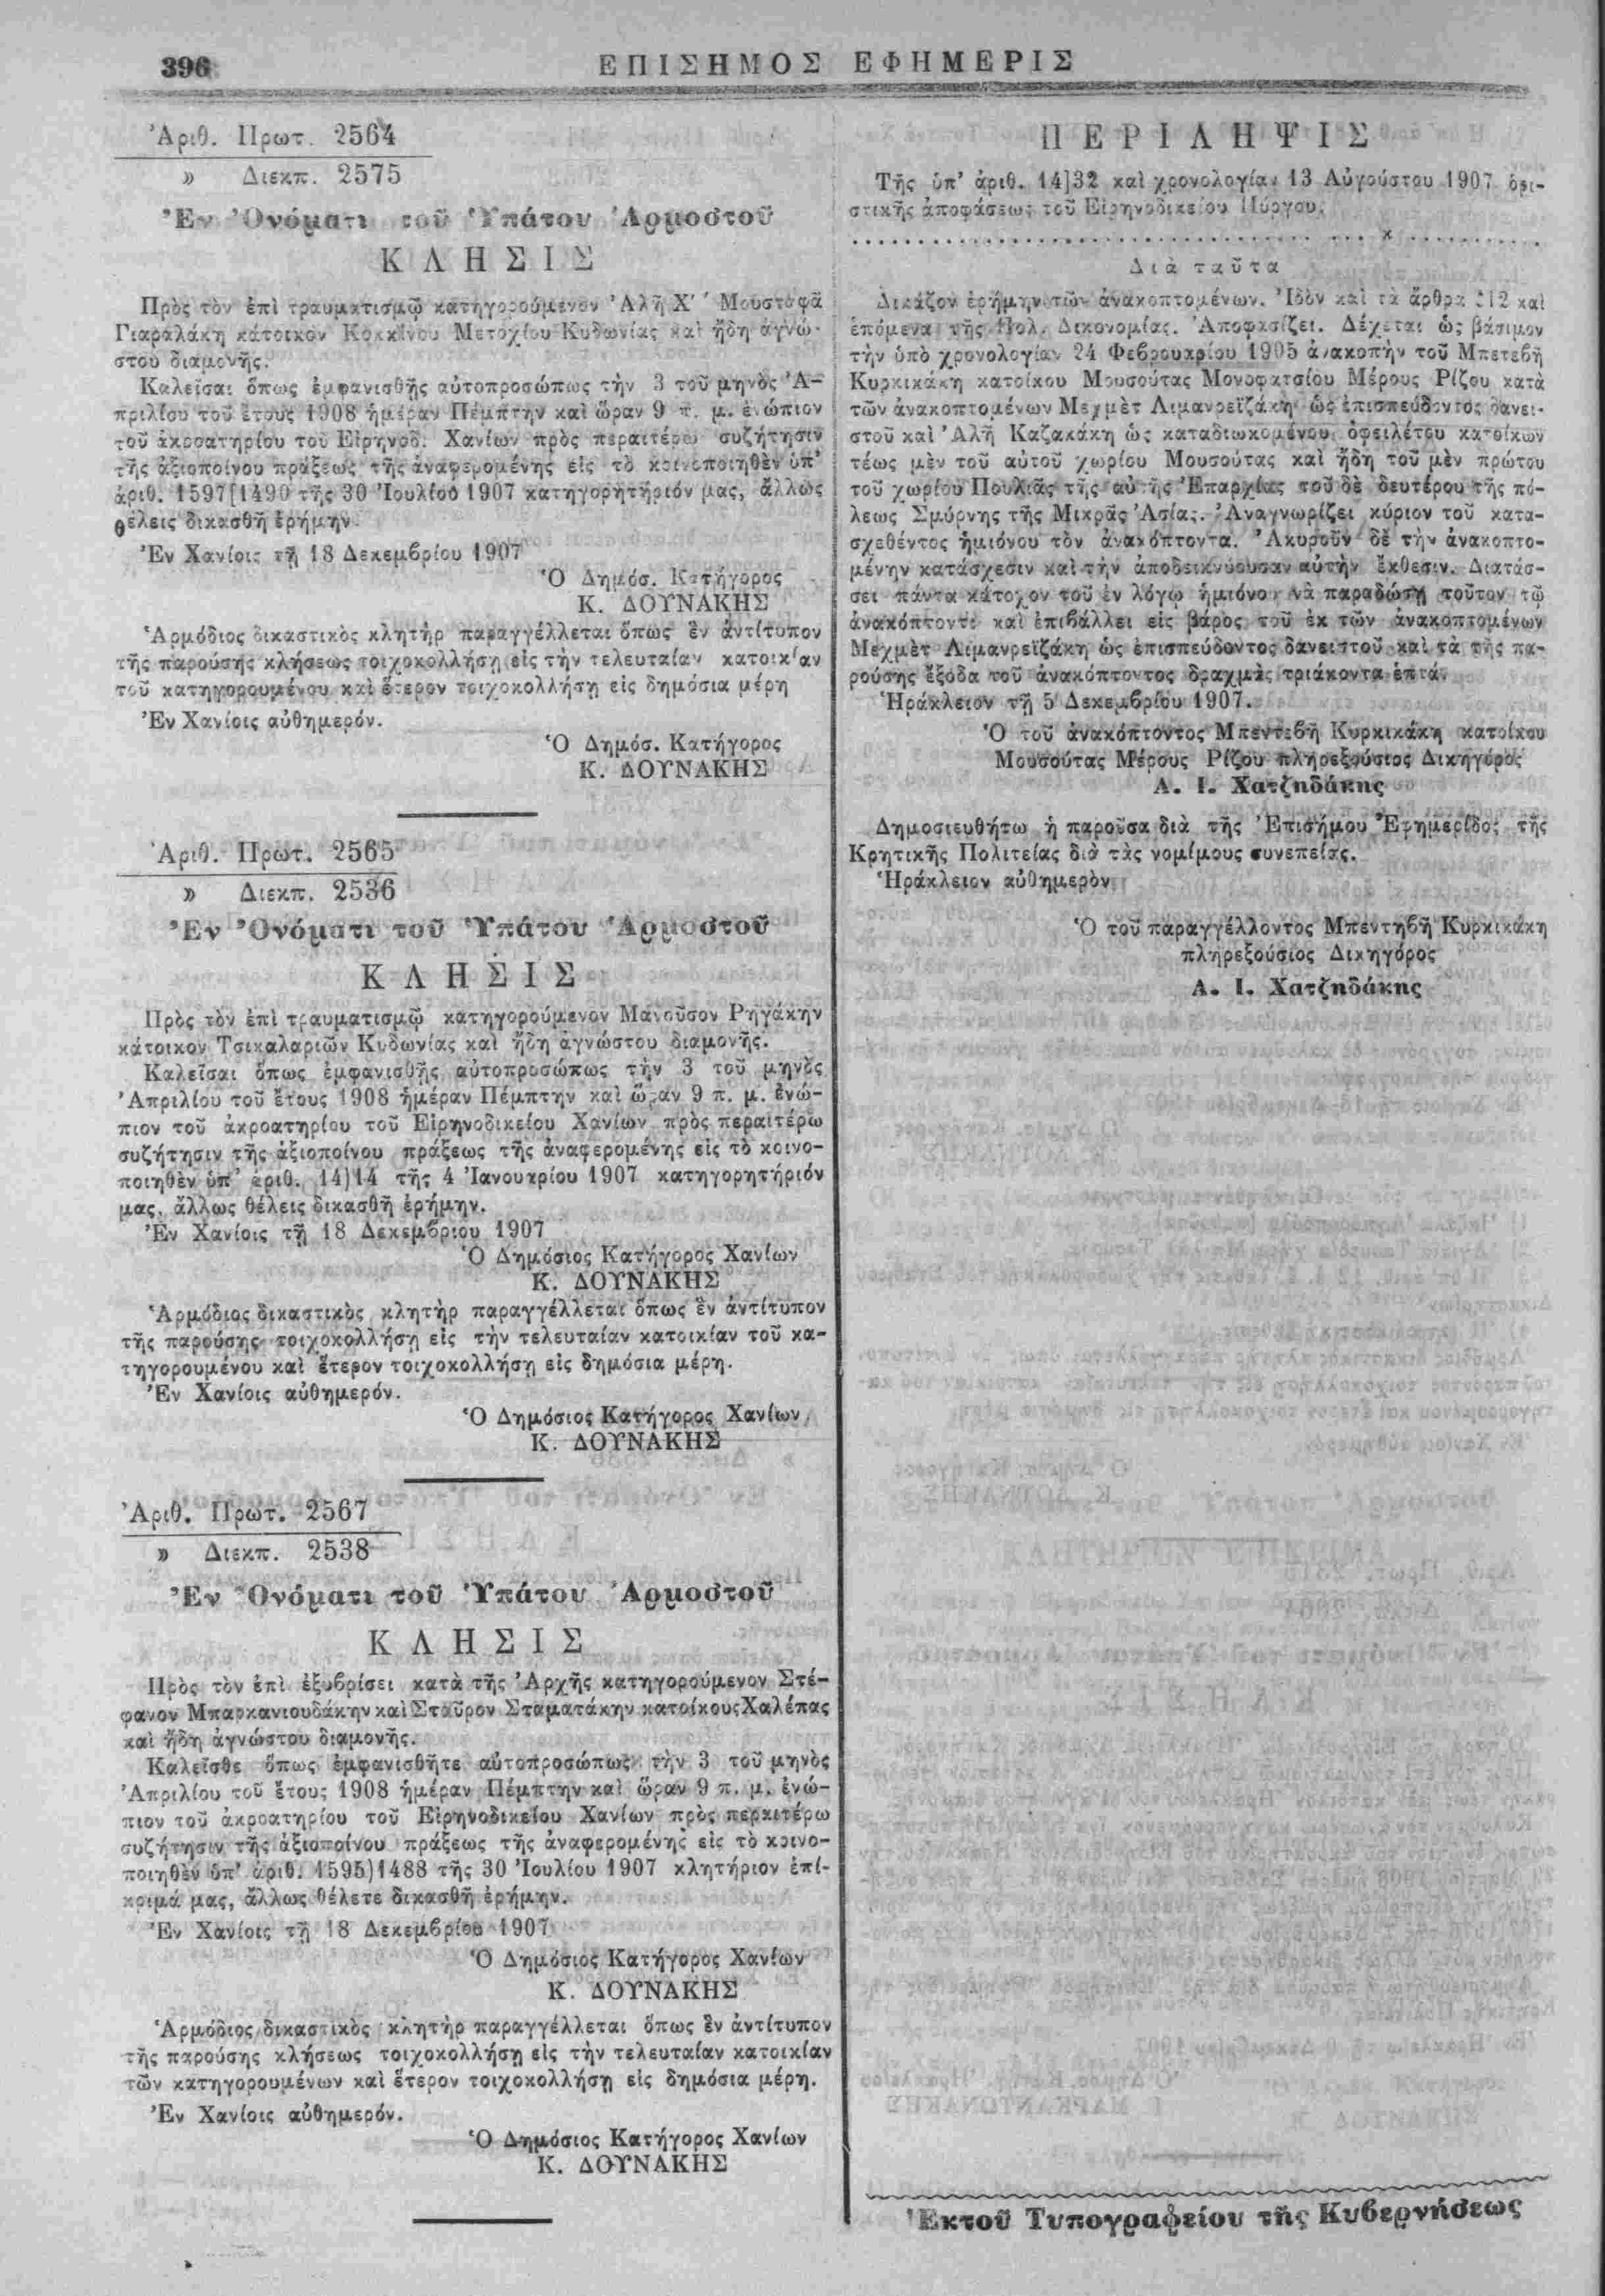 396
ΕΠΙΣΗΜΟΣ ΕΦΗΜΕΡΙΣ
Ἀριθ. Πρωτ. 2564
» Διεκπ. 2575
Ἐν Ὀνόματι τοῦ Ὑπάτου Ἁρμοστοῦ
ΚΛΗΣΙΣ
Πρὸς τὸν ἐπὶ τραυματισμῷ κατηγορούμενον Ἀλῆ Χ΄΄ Μουσταφᾶ
Γιαραλάκη κάτοικον Κοκκίνου Μετοχίου Κυδωνίας καὶ ἤδη ἀγνώ-
στου διαμονῆς.
Καλεῖσαι ὅπως ἐμφανισθῇς αὐτοπροσώπως τὴν 3 τοῦ μηνὸς Ἀ-
πριλίου τοῦ ἔτους 1908 ἡμέραν Πέμπτην καὶ ὥραν 9 π. μ. ἐνώπιον
τοῦ ἀκροατηρίου τοῦ Εἰρηνοδ. Χανίων πρὸς περαιτέρω συζήτησιν
τῆς ἀξιοποίνου πράξεως τῆς ἀναφερομένης εἰς τὸ κοινοποιηθὲν ὑπ’
ἀριθ. 1597[1490 τῆς 30 Ἰουλίου 1907 κατηγορητήριόν μας, ἄλλως
θέλεις δικασθῆ ἐρήμην.
Ἐν Χανίοις τῇ 18 Δεκεμβρίου 1907
Ὁ Δημόσ. Κατήγορος
Κ. ΔΟΥΝΑΚΗΣ
Ἁρμόδιος δικαστικὸς κλητὴρ παραγγέλλεται ὅπως ἓν ἀντίτυπον
τῆς παρούσης κλήσεως τοιχοκολλήσῃ εἰς τὴν τελευταίαν κατοικίαν
τοῦ κατηγορουμένου καὶ ἕτερον τοιχοκολλήσῃ εἰς δημόσια μέρη
Ἐν Χανίοις αὐθημερόν.
Ὁ Δημόσ. Κατήγορος
Κ. ΔΟΥΝΑΚΗΣ
Ἀριθ. Πρωτ. 2565
» Διεκπ. 2536
Ἐν Ὀνόματι τοῦ Ὑπάτου Ἁρμοστοῦ
ΚΛΗΣΙΣ
Πρὸς τὸν ἐπὶ τραυματισμῷ κατηγορούμενον Μανοῦσον Ρηγάκην
κάτοικον Τσικαλαριῶν Κυδωνίας καὶ ἤδη ἀγνώστου διαμονῆς.
Καλεῖσαι ὅπως ἐμφανισθῇς αὐτοπροσώπως τὴν 3 τοῦ μηνὸς
Ἀπριλίου τοῦ ἔτους 1908 ἡμέραν Πέμπτην καὶ ὥραν 9 π. μ. ἐνώ-
πιον τοῦ ἀκροατηρίου τοῦ Εἰρηνοδικείου Χανίων πρὸς περαιτέρω
συζήτησιν τῆς ἀξιοποίνου πράξεως τῆς ἀναφερομένης εἰς τὸ κοινο-
ποιηθὲν ὑπ’ ἀριθ. 14)14 τῆς 4 Ἰανουαρίου 1907 κατηγορητήριόν
μας, ἄλλως θέλεις δικασθῆ ἐρήμην.
Ἐν Χανίοις τῇ 18 Δεκεμβρίου 1907
Ὁ Δημόσιος Κατήγορος Χανίων
Κ. ΔΟΥΝΑΚΗΣ
Ἁρμόδιος δικαστικὸς κλητὴρ παραγγέλλεται ὅπως ἓν ἀντίτυπον
τῆς παρούσης τοιχοκολλήσῃ εἰς τὴν τελευταίαν κατοικίαν τοῦ κα-
τηγορουμένου καὶ ἕτερον τοιχοκολλήσῃ εἰς δημόσια μέρη.
Ἐν Χανίοις αὐθημερόν.
Ὁ Δημόσιος Κατήγορος Χανίων
Κ. ΔΟΥΝΑΚΗΣ
Ἀριθ. Πρωτ. 2567
» Διεκπ. 2538
Ἐν Ὀνόματι τοῦ Ὑπάτου Ἁρμοστοῦ
ΚΛΗΣΙΣ
Πρὸς τὸν ἐπὶ ἐξυβρίσει κατὰ τῆς Ἀρχῆς κατηγορούμενον Στέ-
φανον Μπαρκανιουδάκην καὶ Σταῦρον Σταματάκην κατοίκους Χαλέπας
καὶ ἤδη ἀγνώστου διαμονῆς.
Καλεῖσθε ὅπως ἐμφανισθῆτε αὐτοπροσώπως τὴν 3 τοῦ μηνὸς
Ἀπριλίου τοῦ ἔτους 1908 ἡμέραν Πέμπτην καὶ ὥραν 9 π. μ. ἐνώ-
πιον τοῦ ἀκροατηρίου τοῦ Εἰρηνοδικείου Χανίων πρὸς περαιτέρω
συζήτησιν τῆς ἀξιοποίνου πράξεως τῆς ἀναφερομένης εἰς τὸ κοινο-
ποιηθὲν ὑπ’ ἀριθ. 1595)1488 τῆς 30 Ἰουλίου 1907 κλητήριον ἐπί-
κριμά μας, ἄλλως θέλετε δικασθῆ ἐρήμην.
Ἐν Χανίοις τῇ 18 Δεκεμβρίου 1907
Ὁ Δημόσιος Κατήγορος Χανίων
Κ. ΔΟΥΝΑΚΗΣ
Ἁρμόδιος δικαστικὸς κλητὴρ παραγγέλλεται ὅπως ἓν ἀντίτυπον
τῆς παρούσης κλήσεως τοιχοκολλήσῃ εἰς τὴν τελευταίαν κατοικίαν
τῶν κατηγορουμένων καὶ ἕτερον τοιχοκολλήσῃ εἰς δημόσια μέρη.
Ἐν Χανίοις αὐθημερόν.
Ὁ Δημόσιος Κατήγορος Χανίων
Κ. ΔΟΥΝΑΚΗΣ
ΠΕΡΙΛΗΨΙΣ
Τῆς ὑπ’ ἀριθ. 14]32 καὶ χρονολογίαν 13 Αὐγούστου 1907 ὁρι-
στικῆς ἀποφάσεως τοῦ Εἰρηνοδικείου Πύργου.
Διὰ ταῦτα
Δικάζον ἐρήμην τῶν ἀνακοπτομένων. Ἰδὸν καὶ τὰ ἄρθρα 212 καὶ
ἑπόμενα τῆς Πολ. Δικονομίας. Ἀποφασίζει. Δέχεται ὡς βάσιμον
τὴν ὑπὸ χρονολογίαν 24 Φεβρουαρίου 1905 ἀνακοπὴν τοῦ Μπετεβῆ
Κυρκικάκη κατοίκου Μουσούτας Μονοφατσίου Μέρους Ρίζου κατὰ
τῶν ἀνακοπτομένων Μεχμὲτ Λιμανρεϊζάκη ὡς ἐπισπεύδοντος δανει-
στοῦ καὶ Ἀλῆ Καζακάκη ὡς καταδιωκομένου ὀφειλέτου κατοίκων
τέως μὲν τοῦ αὐτοῦ χωρίου Μουσούτας καὶ ἤδη τοῦ μὲν πρώτου
τοῦ χωρίου Πουλιᾶς τῆς αὐτῆς Ἐπαρχίας τοῦ δὲ δευτέρου τῆς πό-
λεως Σμύρνης τῆς Μικρᾶς Ἀσίας. Ἀναγνωρίζει κύριον τοῦ κατα-
σχεθέντος ἡμιόνου τὸν ἀνακόπτοντα. Ἀκυροῦν δὲ τὴν ἀνακοπτο-
μένην κατάσχεσιν καὶ τὴν ἀποδεικνύουσαν αὐτὴν ἔκθεσιν. Διατάσ-
σει πάντα κάτοχον τοῦ ἐν λόγῳ ἡμιόνου νὰ παραδώσῃ τοῦτον τῷ
ἀνακόπτοντι καὶ ἐπιβάλλει εἰς βάρος τοῦ ἐκ τῶν ἀνακοπτομένων
Μεχμὲτ Λιμανρεϊζάκη ὡς ἐπισπεύδοντος δανειστοῦ καὶ τὰ τῆς πα-
ρούσης ἔξοδα τοῦ ἀνακόπτοντος δραχμὰς τριάκοντα ἑπτά.
Ἡράκλειον τῇ 5 Δεκεμβρίου 1907.
Ὁ τοῦ ἀνακόπτοντος Μπεντεβῆ Κυρκικάκη κατοίκου
Μουσούτας Μέρους Ρίζου πληρεξούσιος Δικηγόρος
Α. Ι. Χατζηδάκης
Δημοσιευθήτω ἡ παροῦσα διὰ τῆς Ἐπισήμου Ἐφημερίδος τῆς
Κρητικῆς Πολιτείας διὰ τὰς νομίμους συνεπείας.
Ἡράκλειον αὐθημερὸν
Ὁ τοῦ παραγγέλλοντος Μπεντηβῆ Κυρκικάκη
πληρεξούσιος Δικηγόρος
Α. Ι. Χατζηδάκης
Ἐκ τοῦ Τυπογραφείου τῆς Κυβερνήσεως